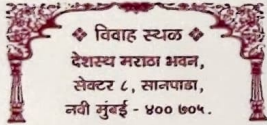 ❖ विवाह स्थळ ❖
देशस्थ मराठा भवन,
सेक्टर ८, सानपाडा,
नवी मुंबई - ४०० ७०५.